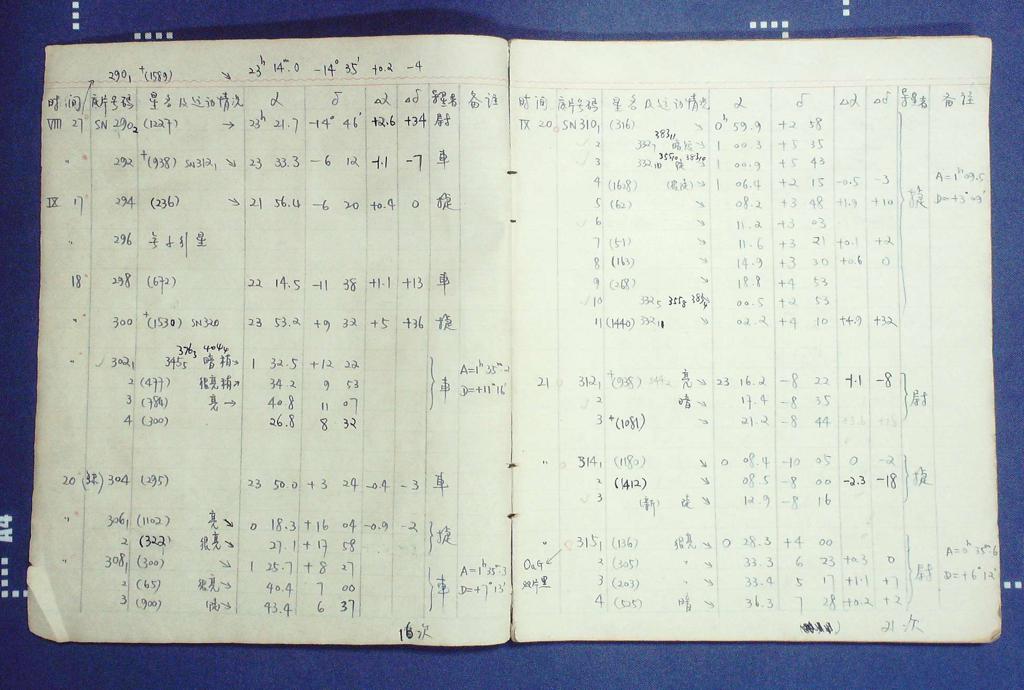 290₁ ⁺(1589) ↘ 23ʰ 14ᵐ.0 -14° 35' +0.2 -4
时间 底片号码 星名及运动情况 α δ Δα Δδ 导星者 备注
VIII 27 SN 290₂ (1227) → 23ʰ 21.7 -14° 46' +2.6 +34 尉
〃 292 ⁺(938) SN312₁ ↘ 23 33.3 -6 12 -1.1 -7 車
IX 17 294 (236) ↘ 21 56.4 -6 20 +0.4 0 捷
〃 296 星
18 298 (672) 22 14.5 -11 38 +1.1 +13 車
〃 300 ⁺(1530) SN320 23 53.2 +9 32 +5 +36 捷
376₃ 404₄
〃 302₁ 345₅ 暗 稍→ 1 32.5 +12 22 A=1ʰ35ᵐ.2
2 (477) 很亮 稍↘ 34.2 9 53 車 D=+11°16'
3 (784) 亮 → 40.8 11 07
4 (300) 26.8 8 32
20 304 (295) 23 50.0 +3 24 -0.4 -3 車
〃 306₁ (1102) 亮↘ 0 18.3 +16 04 -0.9 -2 捷
2 (322) 很亮↘ 27.1 +17 58
308₁ (300) ↘ 1 25.7 +8 27 A=1ʰ35ᵐ.3
2 (65) 很亮↘ 40.4 7 00 車 D=+7°13'
3 (900) ↘ 43.4 6 37
16次
时间 底片号码 星名及运动情况 α δ Δα Δδ 导星者 备注
IX 20 SN310₁ (316) ↘ 0ʰ 59.9 +2 58
383₁₁
2 332₇ 暗 1 00.3 +5 35
3 332₁₀ 355₁₀ 383₁₀ 1 00.9 +5 43
4 (1628) ↘ 1 06.4 +2 15 -0.5 -3 捷 A=1ʰ09.5
5 (62) ↘ 08.2 +3 48 +1.9 +10 D=+3°09'
6 ↘ 11.2 +3 03
7 (51) ↘ 11.6 +3 21 +0.1 +2
8 (163) ↘ 14.9 +3 30 +0.6 0
9 (268) ↘ 18.8 +4 53
10 332₅ 355₈ 383₄ 00.5 +2 53
11 (1440) 332₁₁ ↘ 02.2 +4 10 +4.9 +32
21 312₁ ⁺(938) 344₂ 亮 ↘ 23 16.2 -8 22 -1.1 -8 尉
2 暗 ↘ 17.4 -8 35
3 ⁺(1081) ↘ 21.2 -8 44
〃 314₁ (1180) ↘ 0 08.4 -10 05 0 -2 捷
2 (1412) ↘ 08.5 -8 00 -2.3 -18
3 (新) ↘ 12.9 -8 16
〃 315₁ (136) 很亮 ↘ 0 28.3 +4 00 A=0ʰ35ᵐ.6
OaG 2 (305) 〃 ↘ 33.3 6 23 +0.3 0 尉 D=+6°12'
片里 3 (203) 〃 ↘ 33.4 5 17 +1.1 +7
4 (525) 暗 ↘ 36.3 7 28 +0.2 +2
21次